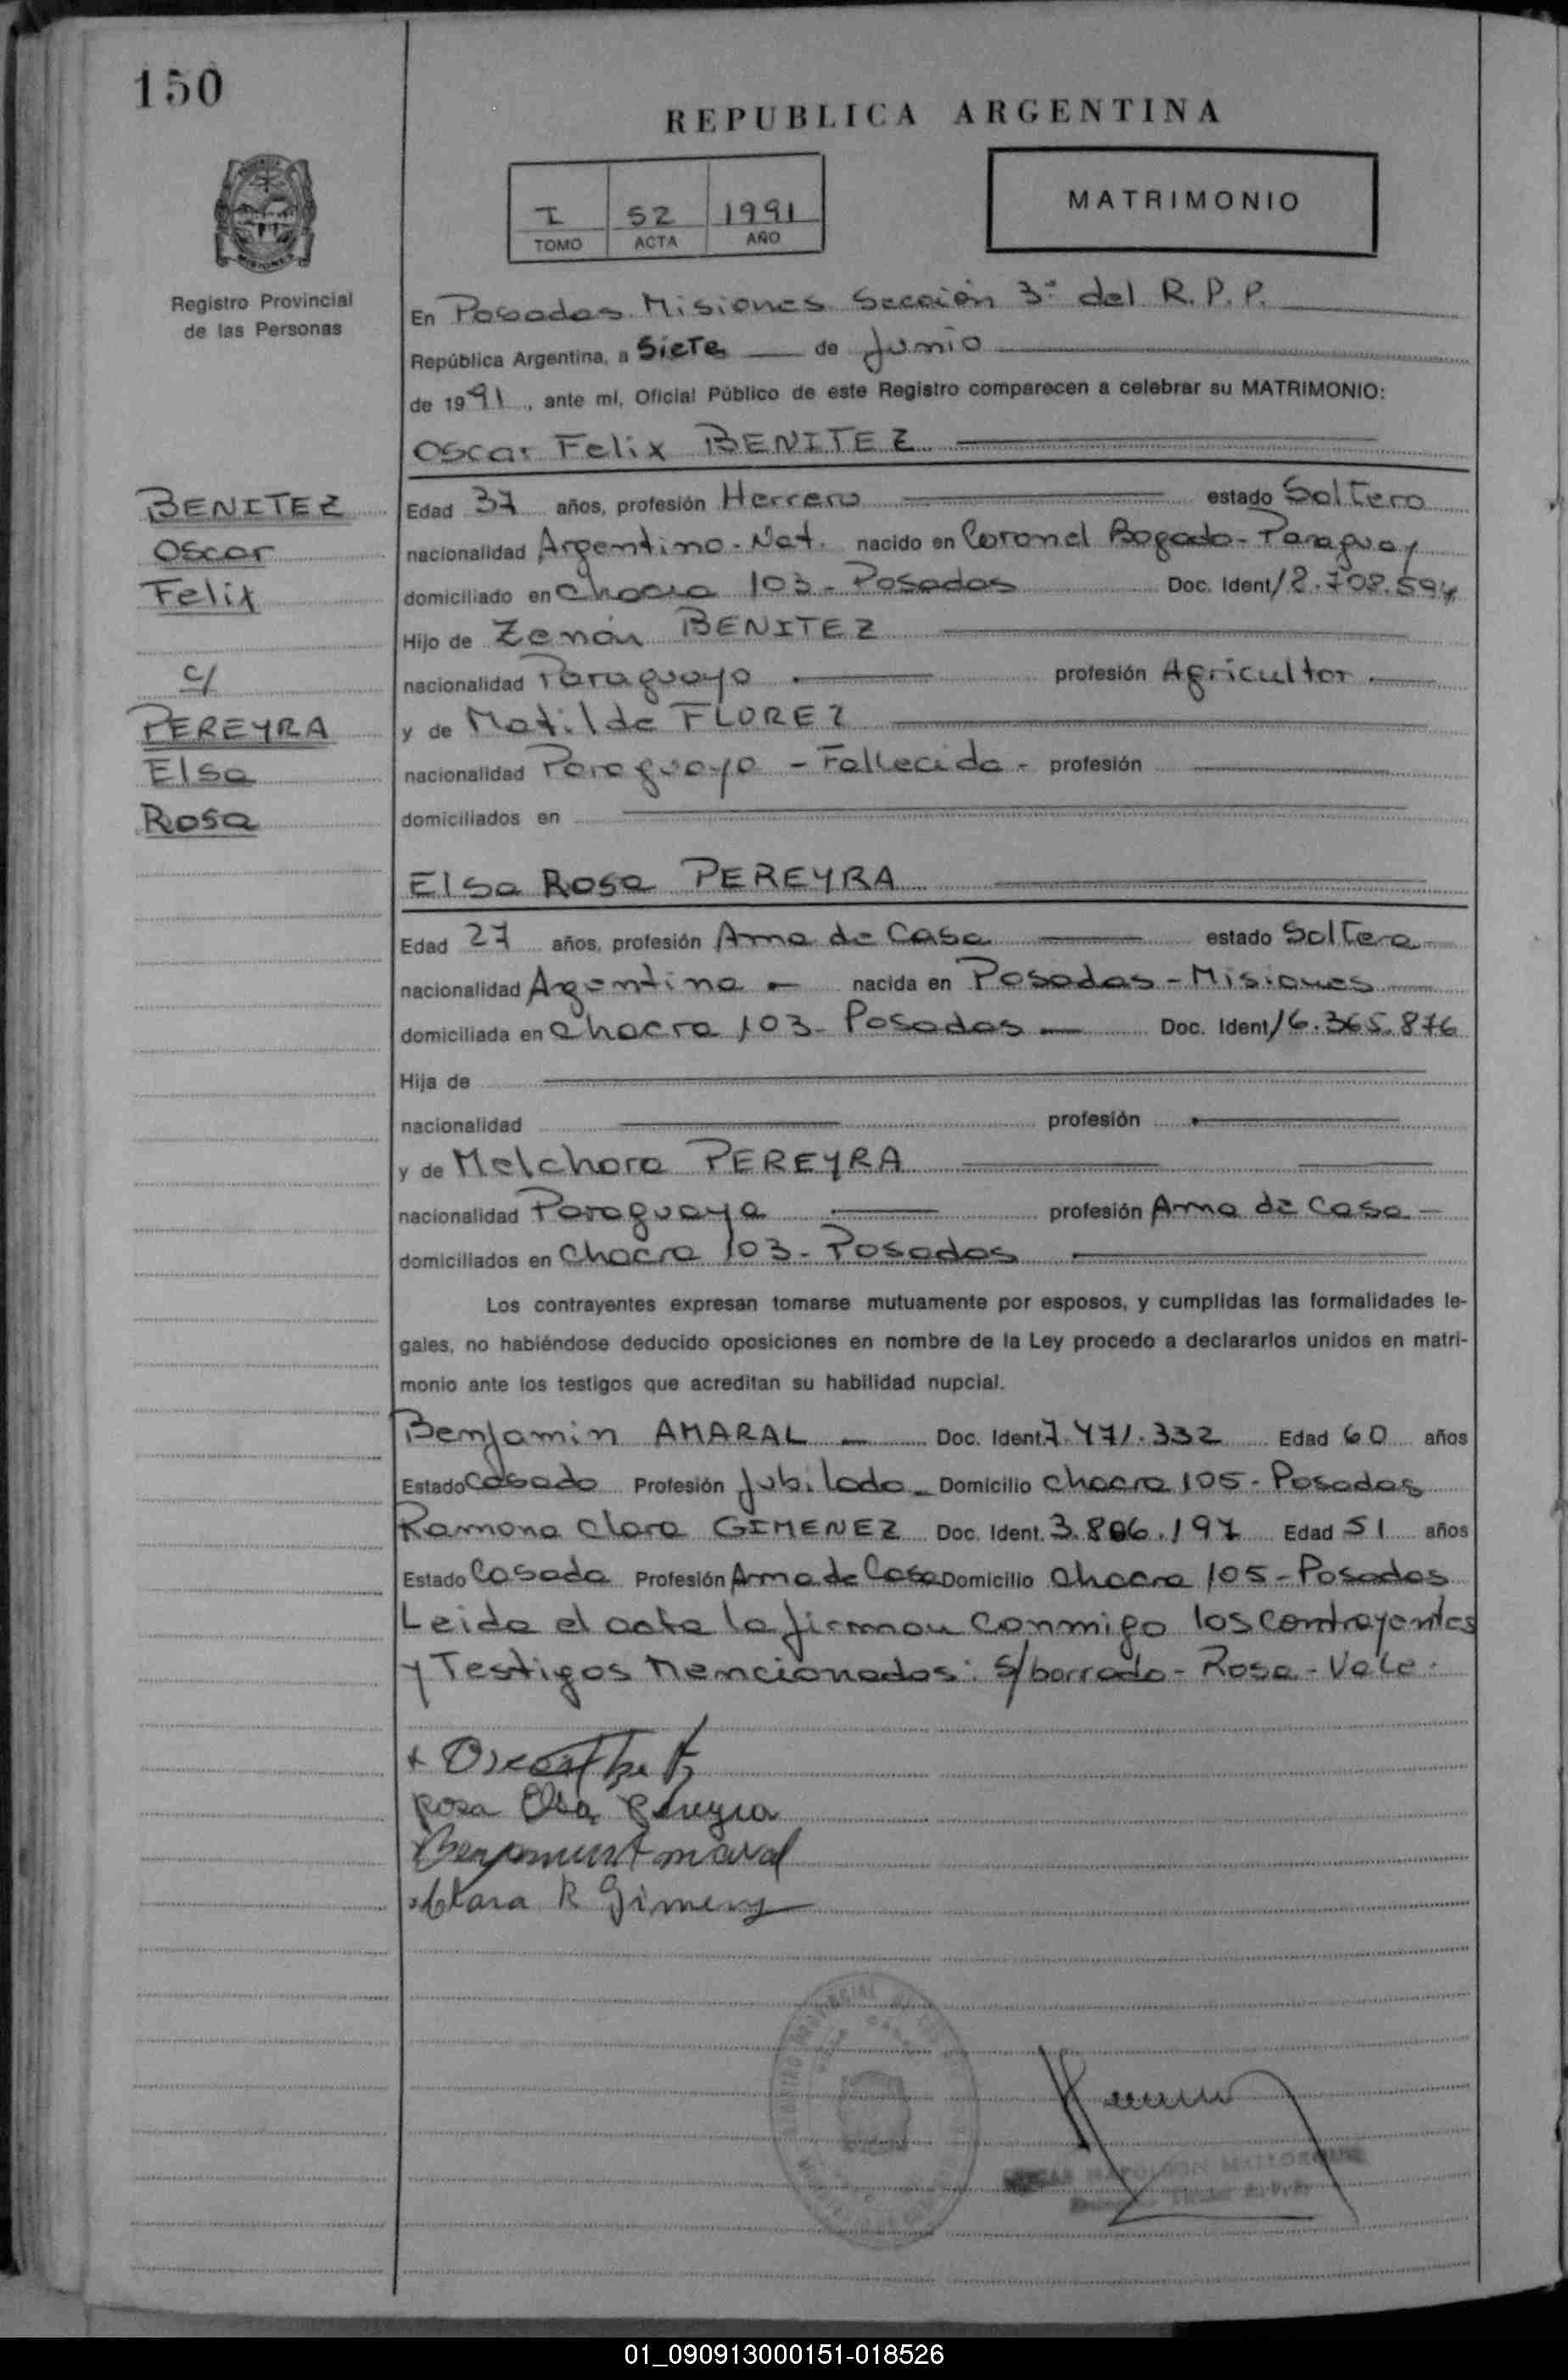 150
REPUBLICA ARGENTINA
MATRIMONIO
I 52 1991
TOMO ACTA AÑO
Registro Provincial
de las Personas
En Posadas Misiones Sección 3ª del R.P.P.
República Argentina, a Siete de Junio
de 1991, ante mí, Oficial Público de este Registro comparecen a celebrar su MATRIMONIO:
Oscar Felix BENITEZ
BENITEZ
Oscar
Felix
c/
PEREYRA
Elsa
Rosa
Edad 37 años, profesión Herrero estado Soltero
nacionalidad Argentino-Nat. nacido en Coronel Bogado-Paraguay
domiciliado en Chacra 103-Posadas Doc. Ident 18.708.594
Hijo de Zenón BENITEZ
nacionalidad Paraguayo profesión Agricultor
y de Matilde FLOREZ
nacionalidad Paraguaya - Fallecida - profesión
domiciliados en
Elsa Rosa PEREYRA
Edad 27 años, profesión Ama de Casa estado Soltera
nacionalidad Argentina nacida en Posadas-Misiones
domiciliada en Chacra 103-Posadas Doc. Ident 16.365.876
Hija de
nacionalidad profesión
y de Melchora PEREYRA
nacionalidad Paraguaya profesión Ama de Casa
domiciliados en Chacra 103-Posadas
Los contrayentes expresan tomarse mutuamente por esposos, y cumplidas las formalidades le-
gales, no habiéndose deducido oposiciones en nombre de la Ley procedo a declararlos unidos en matri-
monio ante los testigos que acreditan su habilidad nupcial.
Benjamin AMARAL Doc. Ident. 7.471.332 Edad 60 años
Estado Casado Profesión Jubilado Domicilio Chacra 105-Posadas
Ramona Clara GIMENEZ Doc. Ident. 3.806.197 Edad 51 años
Estado Casada Profesión Ama de Casa Domicilio Chacra 105-Posadas
Leida el acta la firman conmigo los contrayentes
y Testigos Mencionados: S/borrado-Rosa-Vale.
Rosa Elsa Pereyra
Benjamin Amaral
Clara R Gimenez
NAPOLEON
01_090913000151-018526